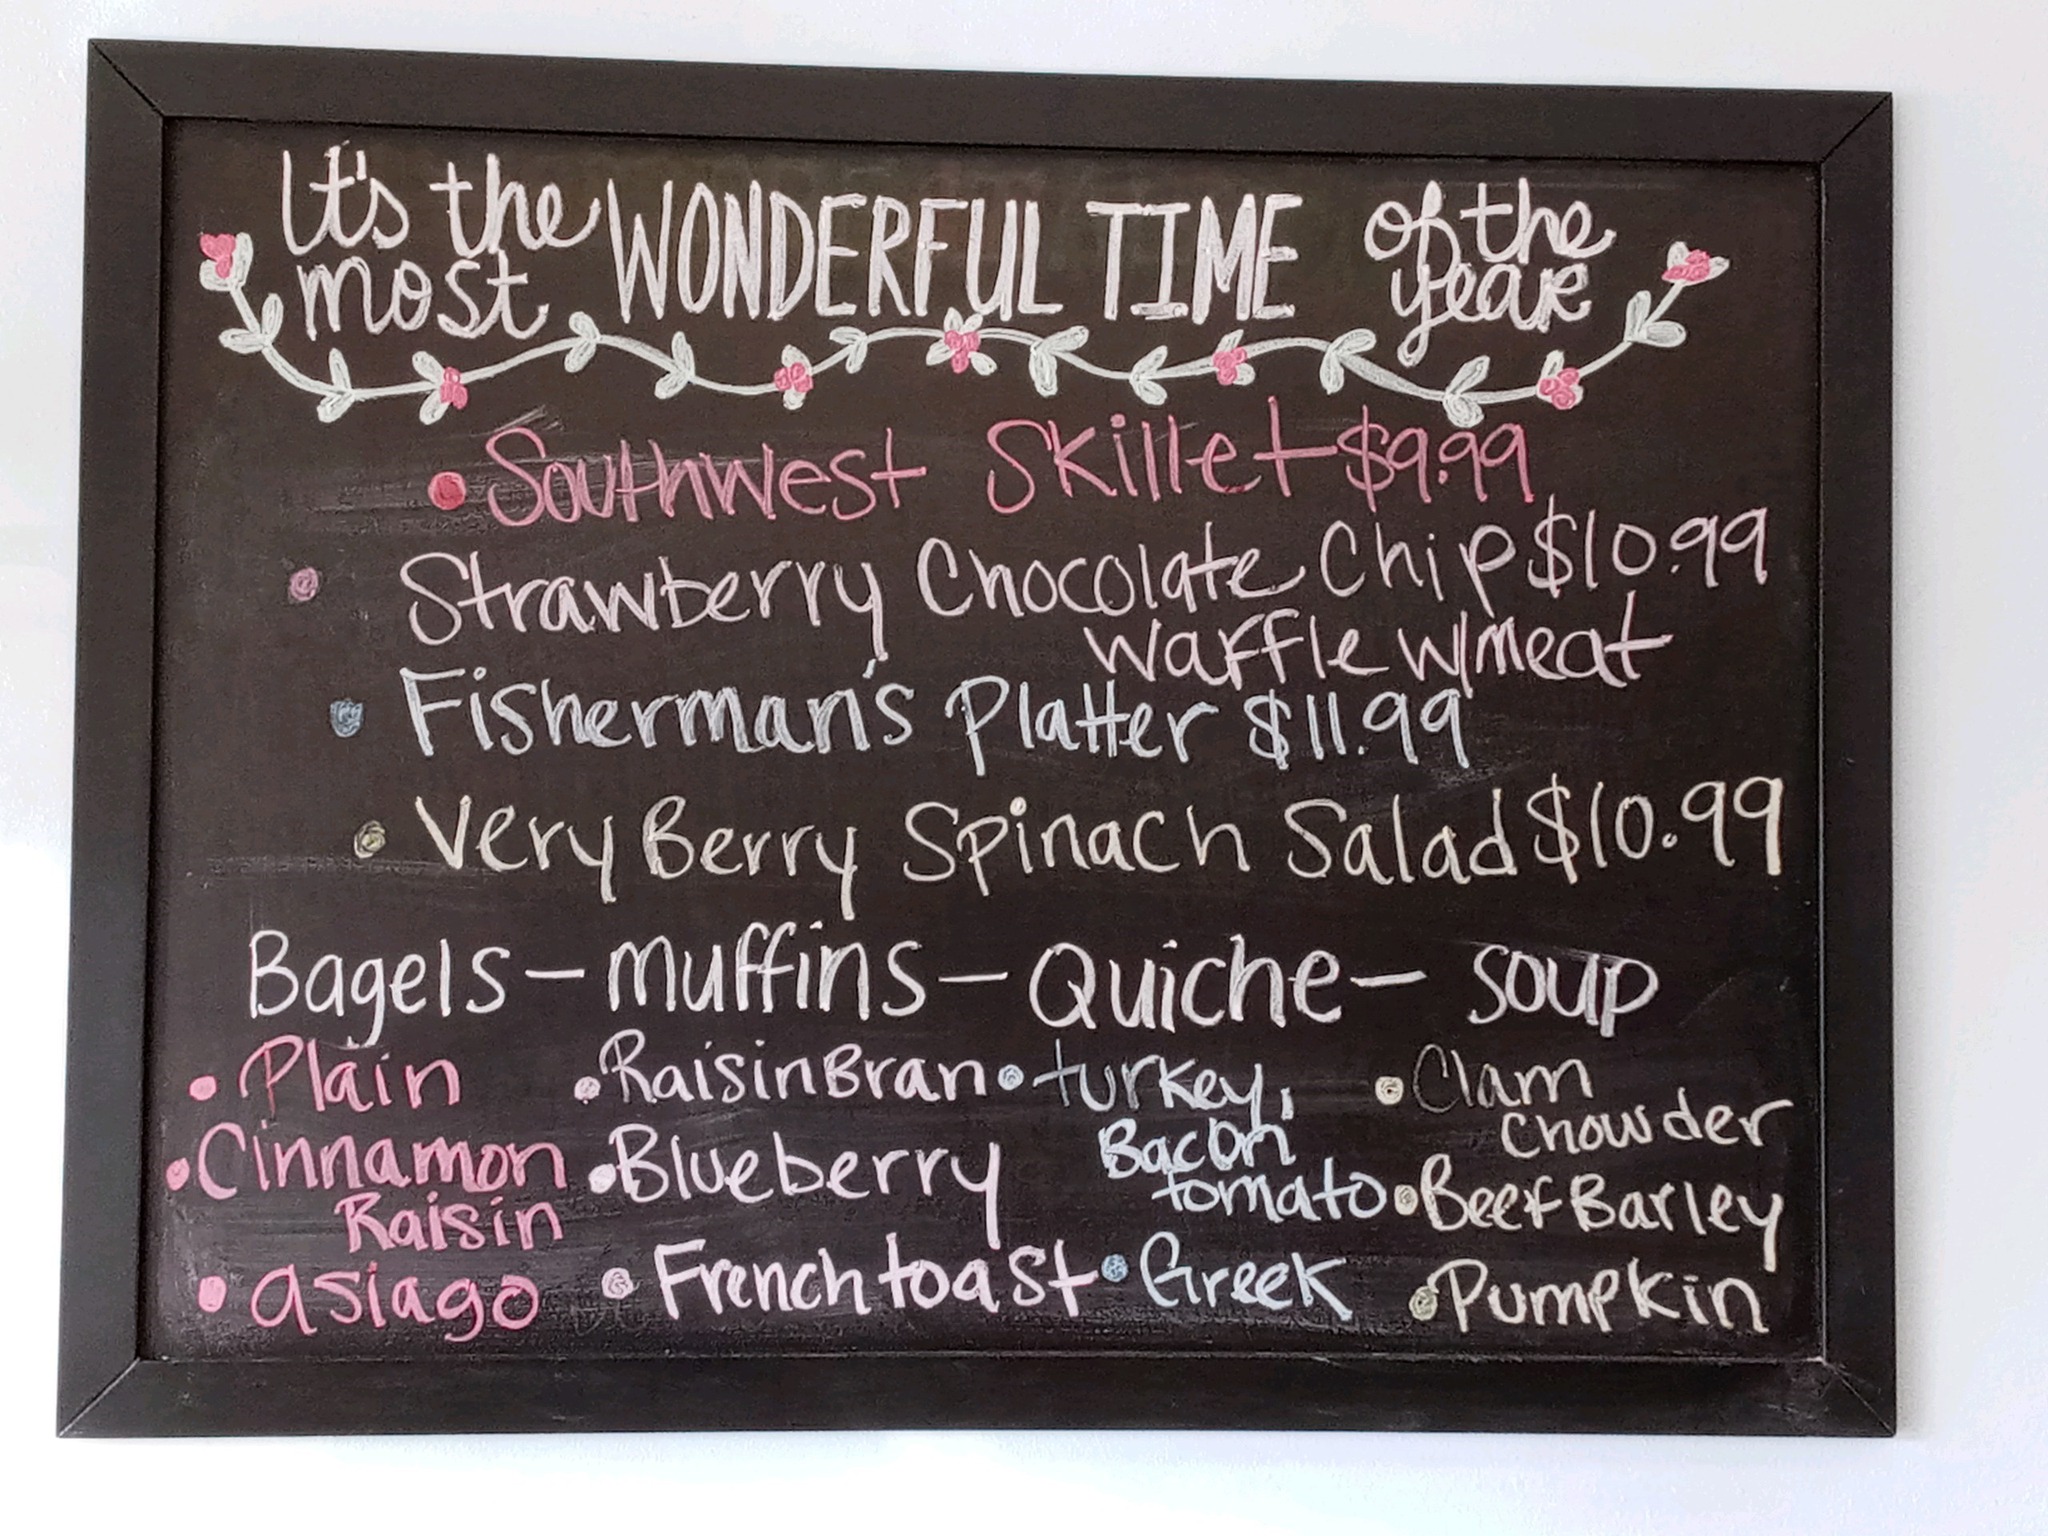 It's the most WONDERFUL TIME of the year
• Southwest Skillet $9.99
• Strawberry Chocolate Chip $10.99
waffle w/meat
• Fisherman's Platter $11.99
• Very Berry Spinach Salad $10.99
Bagels - muffins - Quiche - soup
• Plain
• Cinnamon
Raisin
• asiago
• Raisin Bran
• Blueberry
• French toast
• turkey,
Bacon
tomato
• Greek
• Clam
chowder
• Beef Barley
• Pumpkin